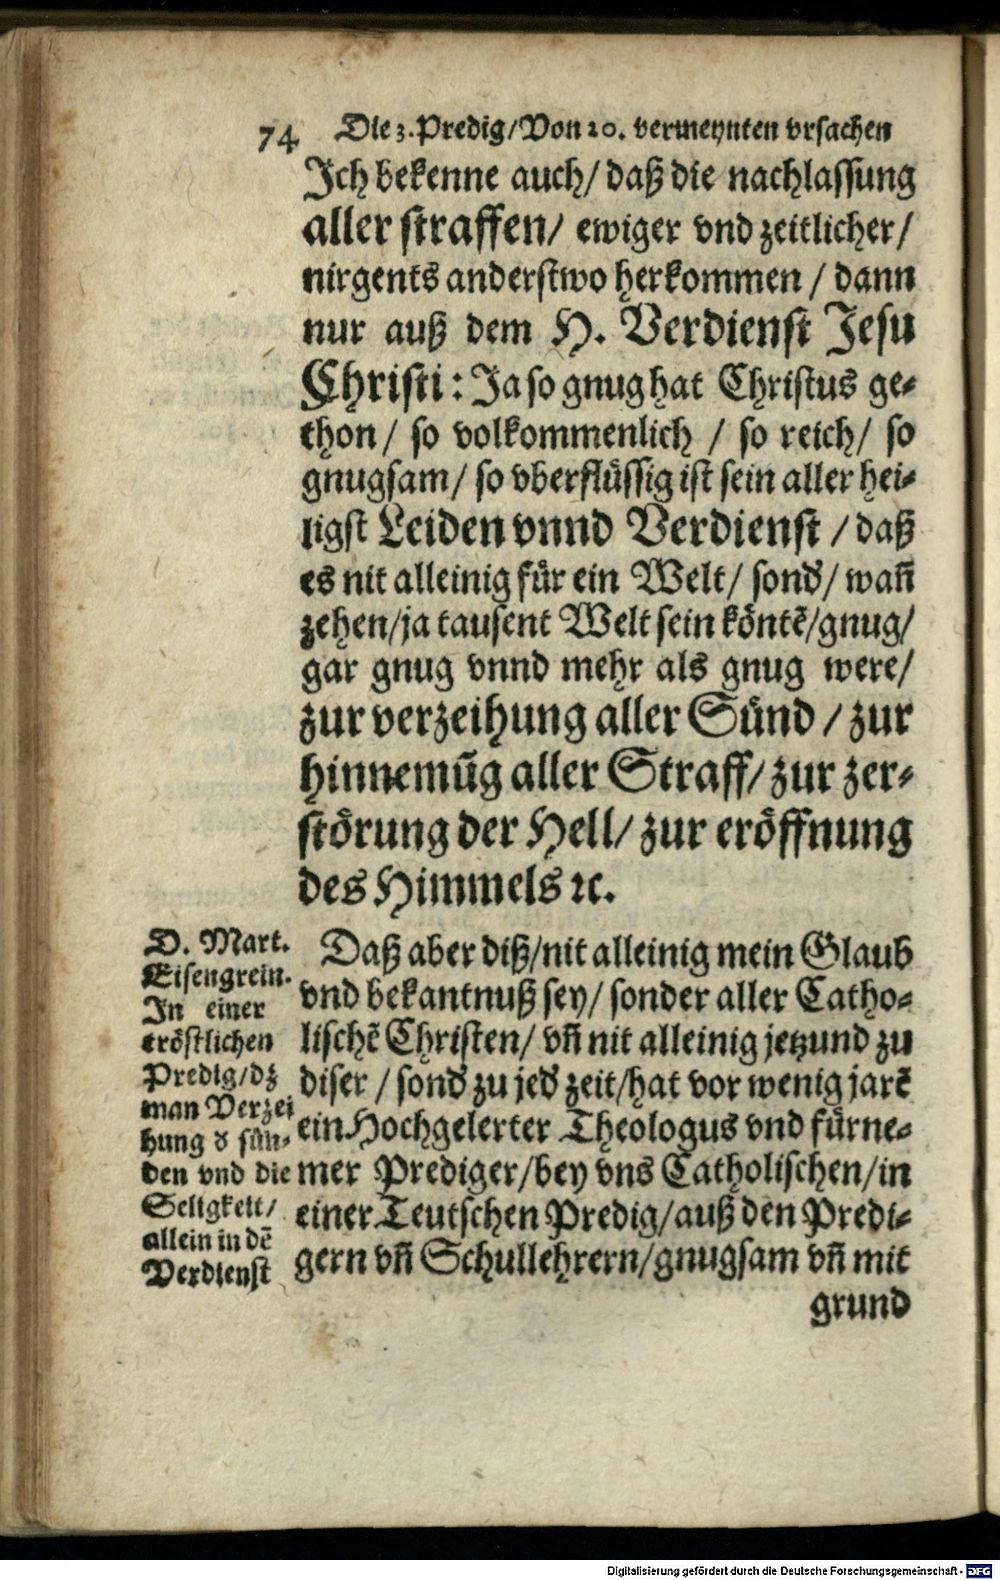 74 Die 3. Predig/Von 20. vermeynten vrsachen
Ich bekenne auch/ daß die nachlassung
aller straffen/ ewiger vnd zeitlicher/
nirgents anderstwo herkommen / dann
nur auß dem H. Verdienst Jesu
Christi: Ja so gnug hat Christus ge-
thon/ so volkommenlich / so reich/ so
gnugsam/ so vberflüssig ist sein aller hei-
ligst Leiden vnnd Verdienst / daß
es nit alleinig für ein Welt/ sond̕/ wañ
zehen/ja tausent Welt sein köntē/gnug/
gar gnug vnnd mehr als gnug were/
zur verzeihung aller Sünd / zur
hinnemũg aller Straff/ zur zer-
störung der Hell/ zur eröffnung
des Himmels ꝛc.
Daß aber diß/nit alleinig mein Glaub
vnd bekantnuß sey/ sonder aller Catho-
lischē Christen/ vñ nit alleinig jetzund zu
diser / sond̕ zu jed̕ zeit/hat vor wenig jarē
ein Hochgelerter Theologus vnd fürne-
mer Prediger/bey vns Catholischen/in
einer Teutschen Predig/auß den Predi-
gern vñ Schullehrern/gnugsam vñ mit
grund
D. Mart.
Eisengrein.
In einer
tröstlichen
Predig/dz
man Verzei
hung d̕ sün-
den vnd die
Seligkeit/
allein in dē
Verdienst
Digitalisierung gefördert durch die Deutsche Forschungsgemeinschaft - DFG